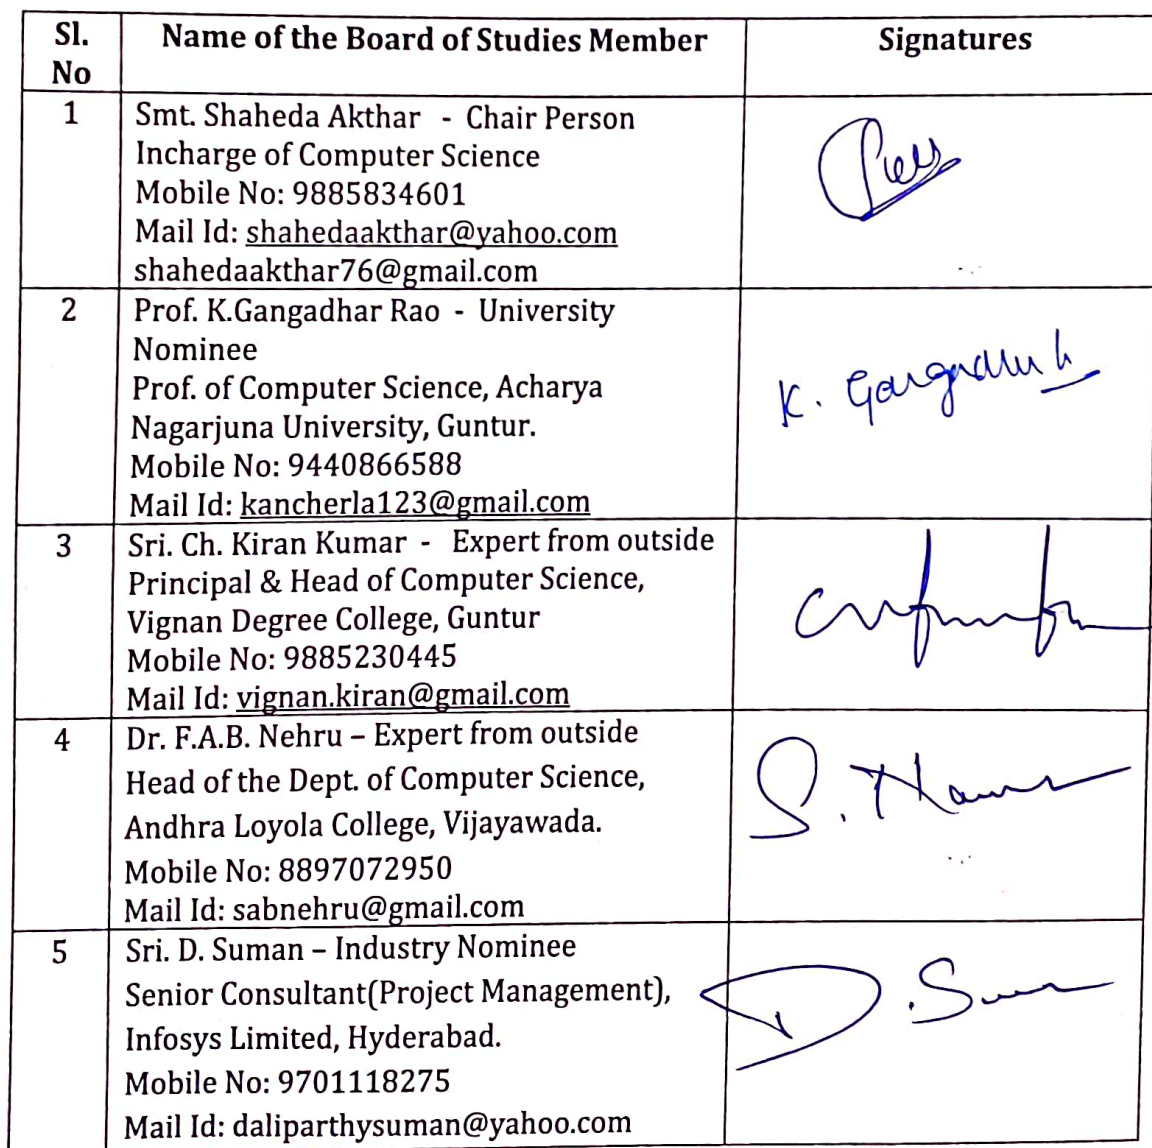 Sl. No Name of the Board of Studies Member Signatures
1 Smt. Shaheda Akthar - Chair Person
Incharge of Computer Science
Mobile No: 9885834601
Mail Id: shahedaakthar@yahoo.com
shahedaakthar76@gmail.com
2 Prof. K.Gangadhar Rao - University
Nominee
Prof. of Computer Science, Acharya
Nagarjuna University, Guntur.
Mobile No: 9440866588
Mail Id: kancherla123@gmail.com
K.
3 Sri. Ch. Kiran Kumar - Expert from outside
Principal & Head of Computer Science,
Vignan Degree College, Guntur
Mobile No: 9885230445
Mail Id: vignan.kiran@gmail.com
4 Dr. F.A.B. Nehru – Expert from outside
Head of the Dept. of Computer Science,
Andhra Loyola College, Vijayawada.
Mobile No: 8897072950
Mail Id: sabnehru@gmail.com
S.
5 Sri. D. Suman – Industry Nominee
Senior Consultant(Project Management),
Infosys Limited, Hyderabad.
Mobile No: 9701118275
Mail Id: daliparthysuman@yahoo.com
D.